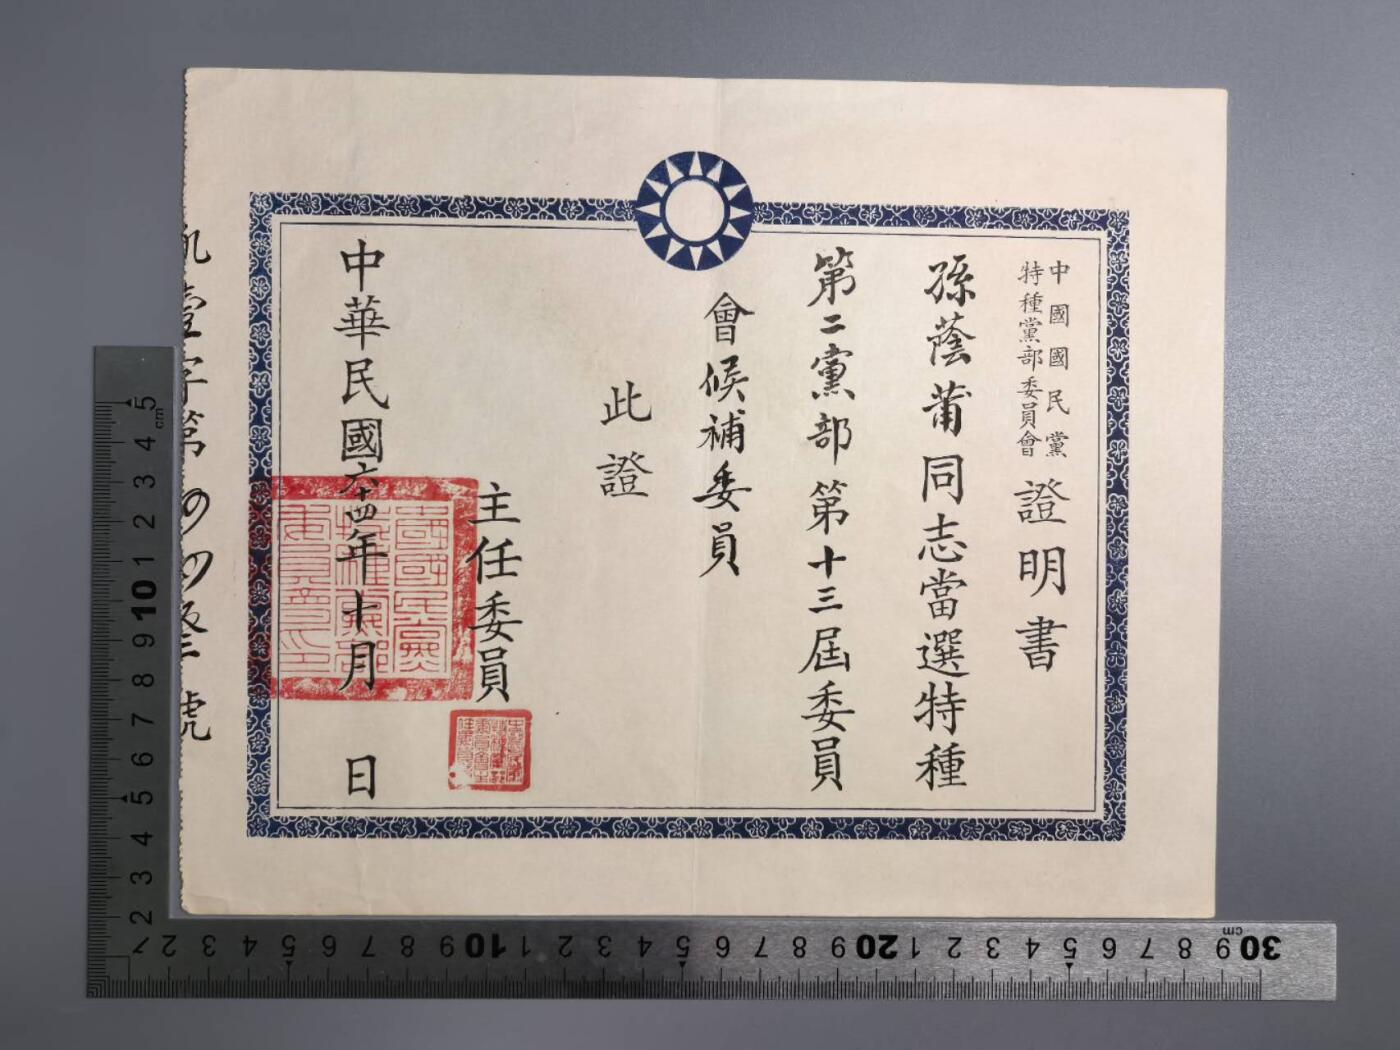 中國國民黨
特種黨部委員會
證明書
孫蔭莆同志當選特種
第二黨部第十三屆委員
會候補委員
此證
主任委員
中華民國六十四年十月 日
壹字第
號
5
cm
4
3
2
1
10
9
8
7
6
5
4
3
2
2 3 4 5 6 7 8 9 10 1 2 3 4 5 6 7 8 9 20 1 2 3 4 5 6 7 8 9 30
cm